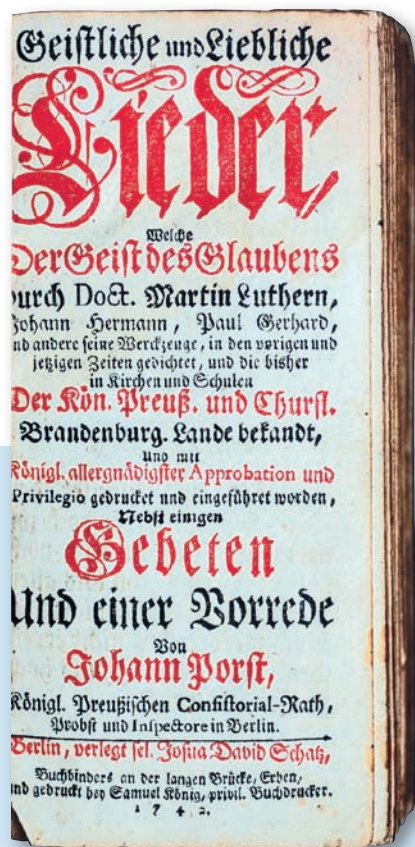 Geistliche und Liebliche
Lieder,
Welche
Der Geist des Glaubens
durch Doct. Martin Luthern,
Johann Hermann, Paul Gerhard,
und andere seine Werckzeuge, in den vorigen und
jetzigen Zeiten gedichtet, und die bisher
in Kirchen und Schulen
Der Kön. Preuß. und Churfl.
Brandenburg. Lande bekandt,
und mit
Königl. allergnädigster Approbation und
Privilegio gedrucket und eingeführet worden,
Nebst einigen
Gebeten
Und einer Vorrede
Von
Johann Porst,
Königl. Preußischen Consistorial-Rath,
Probst und Inspectore in Berlin.
Berlin, verlegt sel. Josua David Schatz,
Buchbinders an der langen Brücke, Erben,
und gedruckt bey Samuel König, privil. Buchdrucker.
1742.